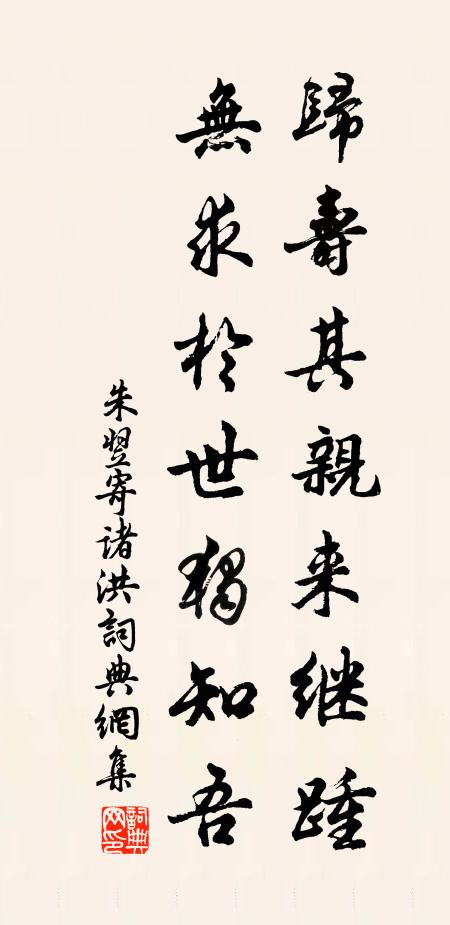 歸壽其親来继踵
無求於世獨知吾
朱翌寄诸洪詞典網集
詞典网印